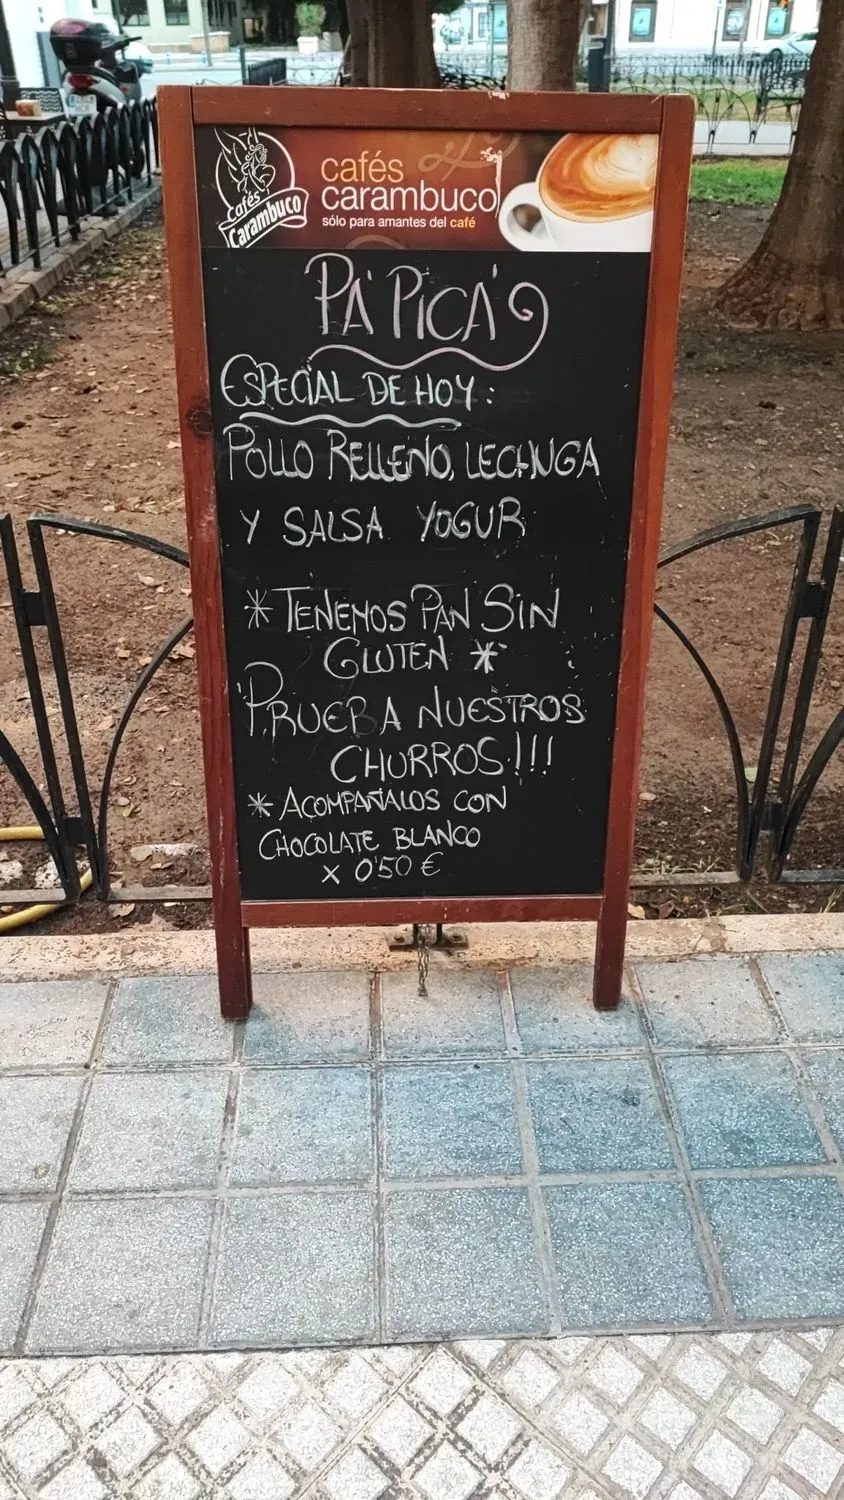 cafés
Carambuco
cafés
carambuco
sólo para amantes del café
PA' PICÁ
ESPECIAL DE HOY:
POLLO RELLENO, LECHUGA
Y SALSA YOGUR
* TENEMOS PAN SIN
GLUTEN *
PRUEBA NUESTROS
CHURROS!!!
* ACOMPAÑALOS CON
CHOCOLATE BLANCO
X 0'50 €